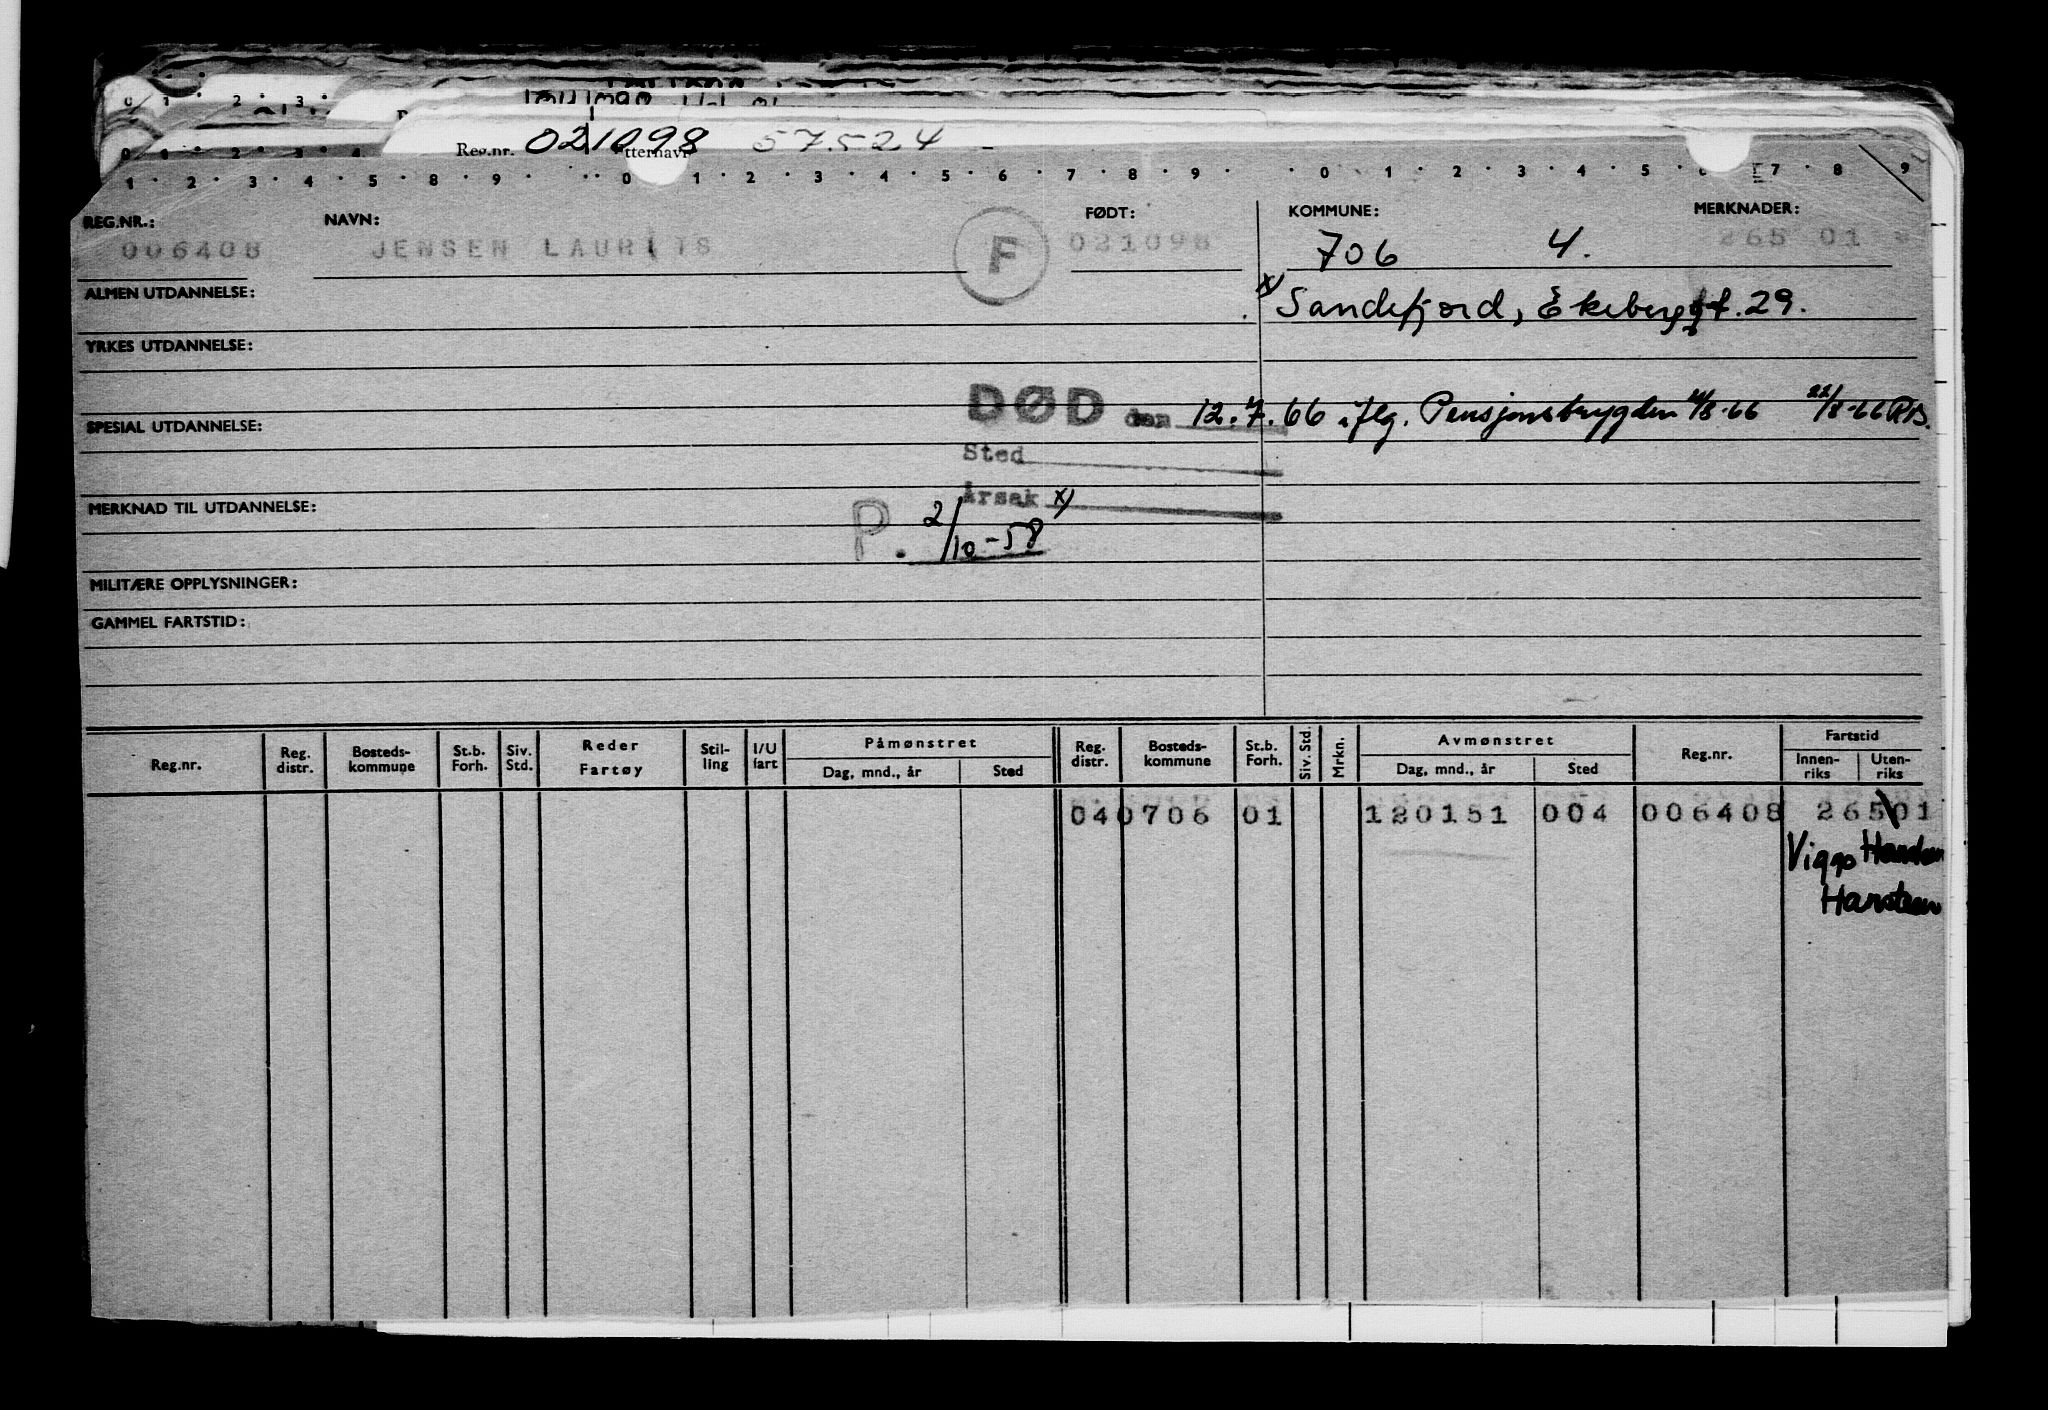 0 1 2 3
Reg.nr. 021098 tternavn 57.524
0 1 2 3 4
1 2 3 4 5 8 9 0 1 2 3 4 5 6 7 8 9 0 1 2 3 4 5 7 8 9
REG.NR.: NAVN: FØDT: KOMMUNE: MERKNADER:
006408 JENSEN LAURITS F 021098 706 4. 265 01
ALMEN UTDANNELSE: x) Sandefjord, Ekebergt. 29.
YRKES UTDANNELSE:
DØD den 12.7.66 iflg. Pensjonstrygden /8-66 22/8-66 RB.
SPESIAL UTDANNELSE:
Sted
Årsak x)
MERKNAD TIL UTDANNELSE:
P. 2/10-58
MILITÆRE OPPLYSNINGER:
GAMMEL FARTSTID:
Reg.nr. Reg. distr. Bosteds-kommune St.b. Forh. Siv. Std. Reder Fartøy Stil-ling I/U fart Påmønstret Dag, mnd., år Sted Reg. distr. Bosteds-kommune St.b. Forh. Siv. Std. Mrkn. Avmønstret Dag, mnd., år Sted Reg.nr. Fartstid Innen-riks Uten-riks
040706 01 120151 004 006408 26501
Viggo
Hansteen